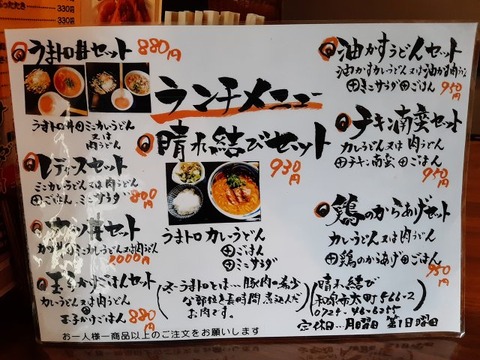 330円
330円
うまトロ丼セット 880円
うまトロ丼 田ミニカレーうどん
又は
肉うどん
レディースセット
ミニカレーうどん又は肉うどん
田ごはん、ミニサラダ
800円
カツ丼セット
1000円
玉子かけごはんセット
カレーうどん又は肉うどん
田
玉子かけごはん 880円
お一人様一商品以上のご注文をお願いします
ランチメニュー
晴れ結びセット
930円
うまトロ カレーうどん
田ごはん
田ミニサラダ
豚肉の希少
な部位を長時間煮込んだ
お肉です。
油かすうどんセット
油かすカレーうどん又は油かす肉うどん
田ミニサラダ 田ごはん 950円
チキン南蛮セット
カレーうどん又は肉うどん
田チキン南蛮 田ごはん
950円
鶏のからあげセット
カレーうどん 又は肉うどん
田鶏のからあげ 田ごはん
950円
晴れ結び
和泉市太町566-2
0725-46-6255
定休日…月曜日 第1日曜日